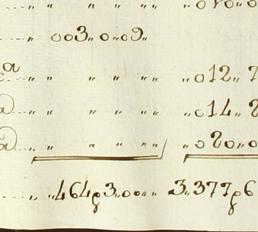 „ 003„0„09„
a „ „ „ „ „ 012„7
a „ „ „ „ „ 014„8
a „ „ „ „ „ 020„0
„ „464 3„00„„ 3„377 6